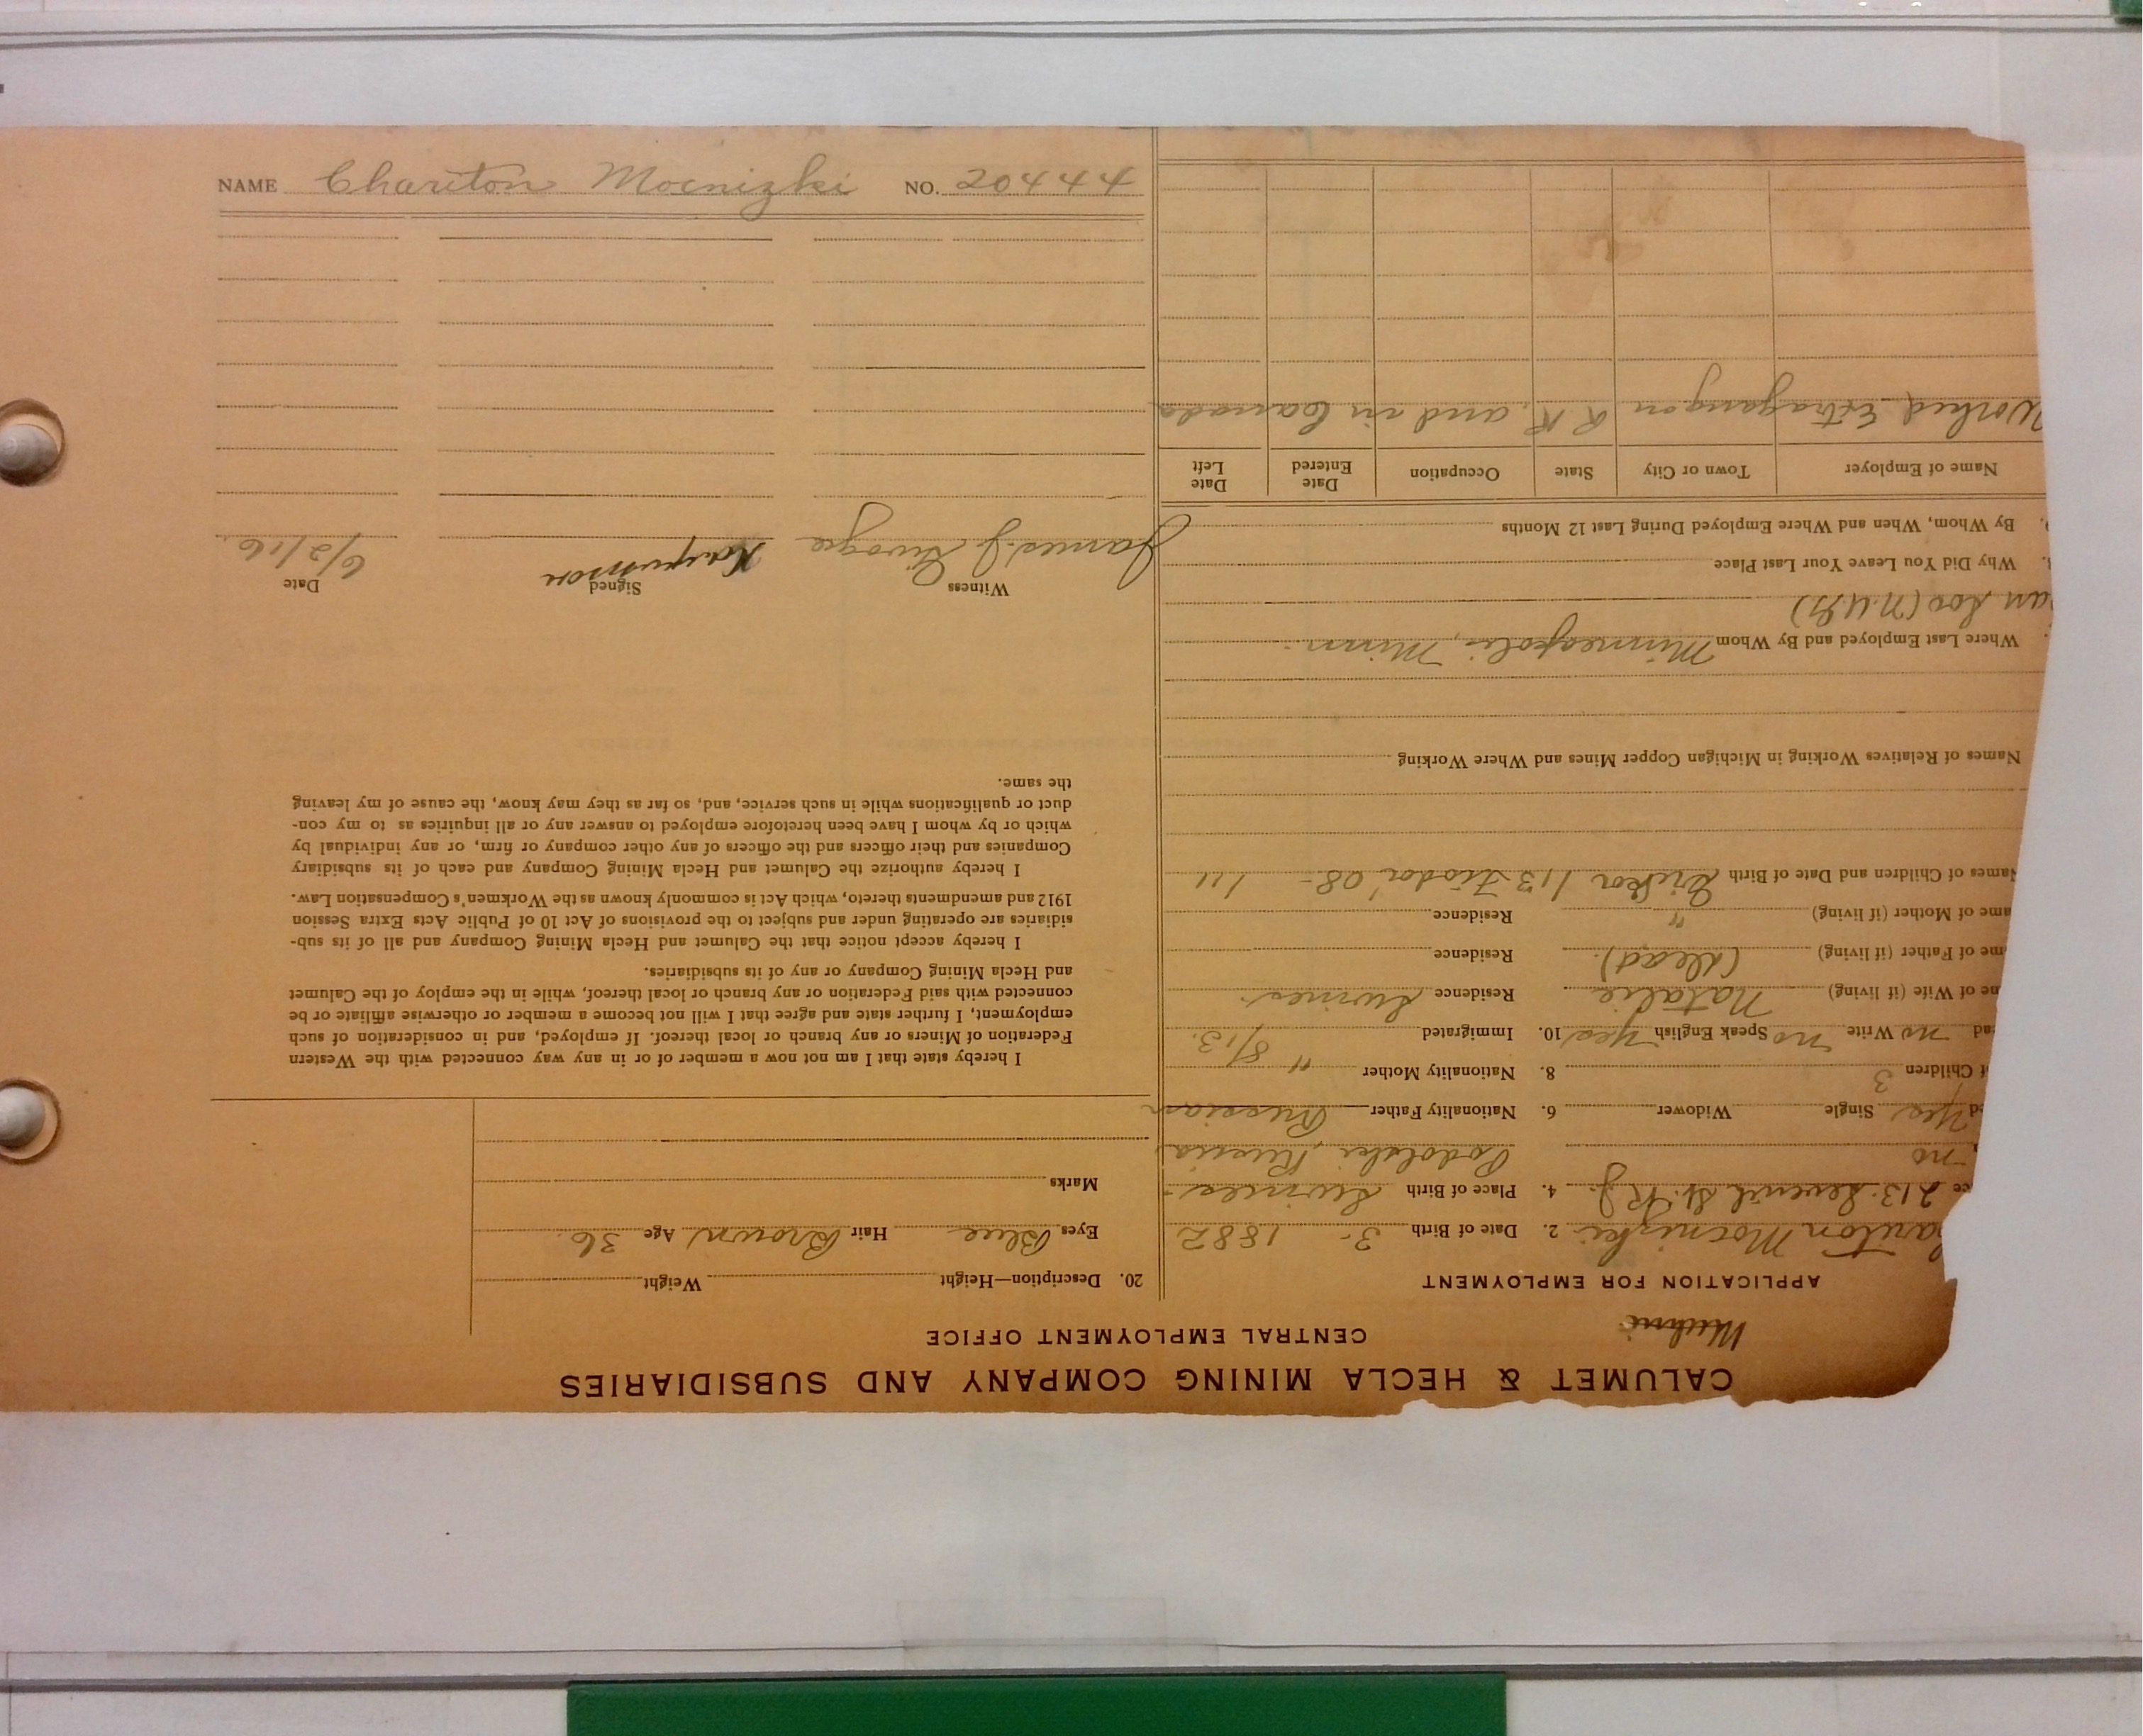 CALUMET & HECLA MINING COMPANY AND SUBSIDIARIES
CENTRAL EMPLOYMENT OFFICE
APPLICATION FOR EMPLOYMENT
ariton Mocnizki 2. Date of Birth 3- 1882
ce 213 Seventh St. R J. 4. Place of Birth
no Podolski Russia
ed Yes Single Widower 6. Nationality Father Russian
f Children 3 8. Nationality Mother "
ad no Write no Speak English Yes 10. Immigrated 8/13.
me of Wife (if living) Natalie Residence
me of Father (if living) (dead). Residence
ame of Mother (if living) " Residence
Names of Children and Date of Birth 113 '08- 111
Names of Relatives Working in Michigan Copper Mines and Where Working
Where Last Employed and By Whom Minneapolis, Minn.-
an Soo
Why Did You Leave Your Last Place
By Whom, When and Where Employed During Last 12 Months
Name of Employer Town or City State Occupation Date Entered Date Left
Worked Extra gang on R R. and in Canada
20. Description—Height Weight
Eyes Blue Hair Brown Age 36.
Marks
I hereby state that I am not now a member of or in any way connected with the Western
Federation of Miners or any branch or local thereof. If employed, and in consideration of such
employment, I further state and agree that I will not become a member or otherwise affiliate or be
connected with said Federation or any branch or local thereof, while in the employ of the Calumet
and Hecla Mining Company or any of its subsidiaries.
I hereby accept notice that the Calumet and Hecla Mining Company and all of its sub-
sidiaries are operating under and subject to the provisions of Act 10 of Public Acts Extra Session
1912 and amendments thereto, which Act is commonly known as the Workmen's Compensation Law.
I hereby authorize the Calumet and Hecla Mining Company and each of its subsidiary
Companies and their officers and the officers of any other company or firm, or any individual by
which or by whom I have been heretofore employed to answer any or all inquiries as to my con-
duct or qualifications while in such service, and, so far as they may know, the cause of my leaving
the same.
Witness Signed Date
James J. 6/2/16.
NAME Chariton Mocnizki NO. 20444